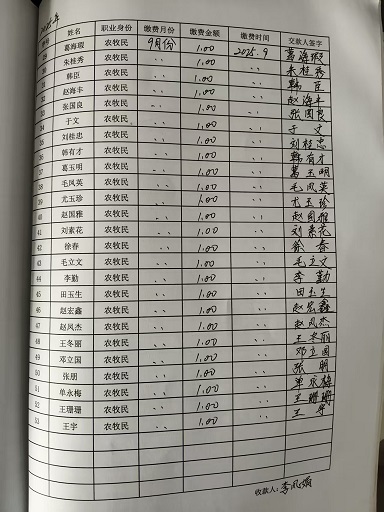 2025年
序号 姓名 职业身份 缴费月份 缴费金额 缴费时间 交款人签字
葛海瑕 农牧民 9月份 1.00 2025.9 葛海瑕
朱桂秀 农牧民 〃 1.00 〃 朱桂秀
韩臣 农牧民 〃 1.00 〃 韩臣
赵海丰 农牧民 〃 1.00 〃 赵海丰
张国良 农牧民 〃 1.00 〃 张国良
于文 农牧民 〃 1.00 〃 于文
刘桂忠 农牧民 〃 1.00 〃 刘桂忠
韩有才 农牧民 〃 1.00 〃 韩有才
葛玉明 农牧民 〃 1.00 〃 葛玉明
38 毛风英 农牧民 〃 1.00 〃 毛风英
39 尤玉珍 农牧民 〃 1.00 〃 尤玉珍
40 赵国雅 农牧民 〃 1.00 〃 赵国雅
41 刘素花 农牧民 〃 1.00 〃 刘素花
42 徐春 农牧民 〃 1.00 〃 徐春
43 毛立文 农牧民 〃 1.00 〃 毛立文
44 李勤 农牧民 〃 1.00 〃 李勤
45 田玉生 农牧民 〃 1.00 〃 田玉生
46 赵宏鑫 农牧民 〃 1.00 〃 赵宏鑫
47 赵凤杰 农牧民 〃 1.00 〃 赵凤杰
48 王冬丽 农牧民 〃 1.00 〃 王冬丽
49 邓立国 农牧民 〃 1.00 〃 邓立国
50 张朋 农牧民 〃 1.00 〃 张朋
51 单永梅 农牧民 〃 1.00 〃 单永梅
52 王珊珊 农牧民 〃 1.00 〃 王珊珊
53 王宇 农牧民 〃 1.00 〃 王宇
收款人：李凤娟